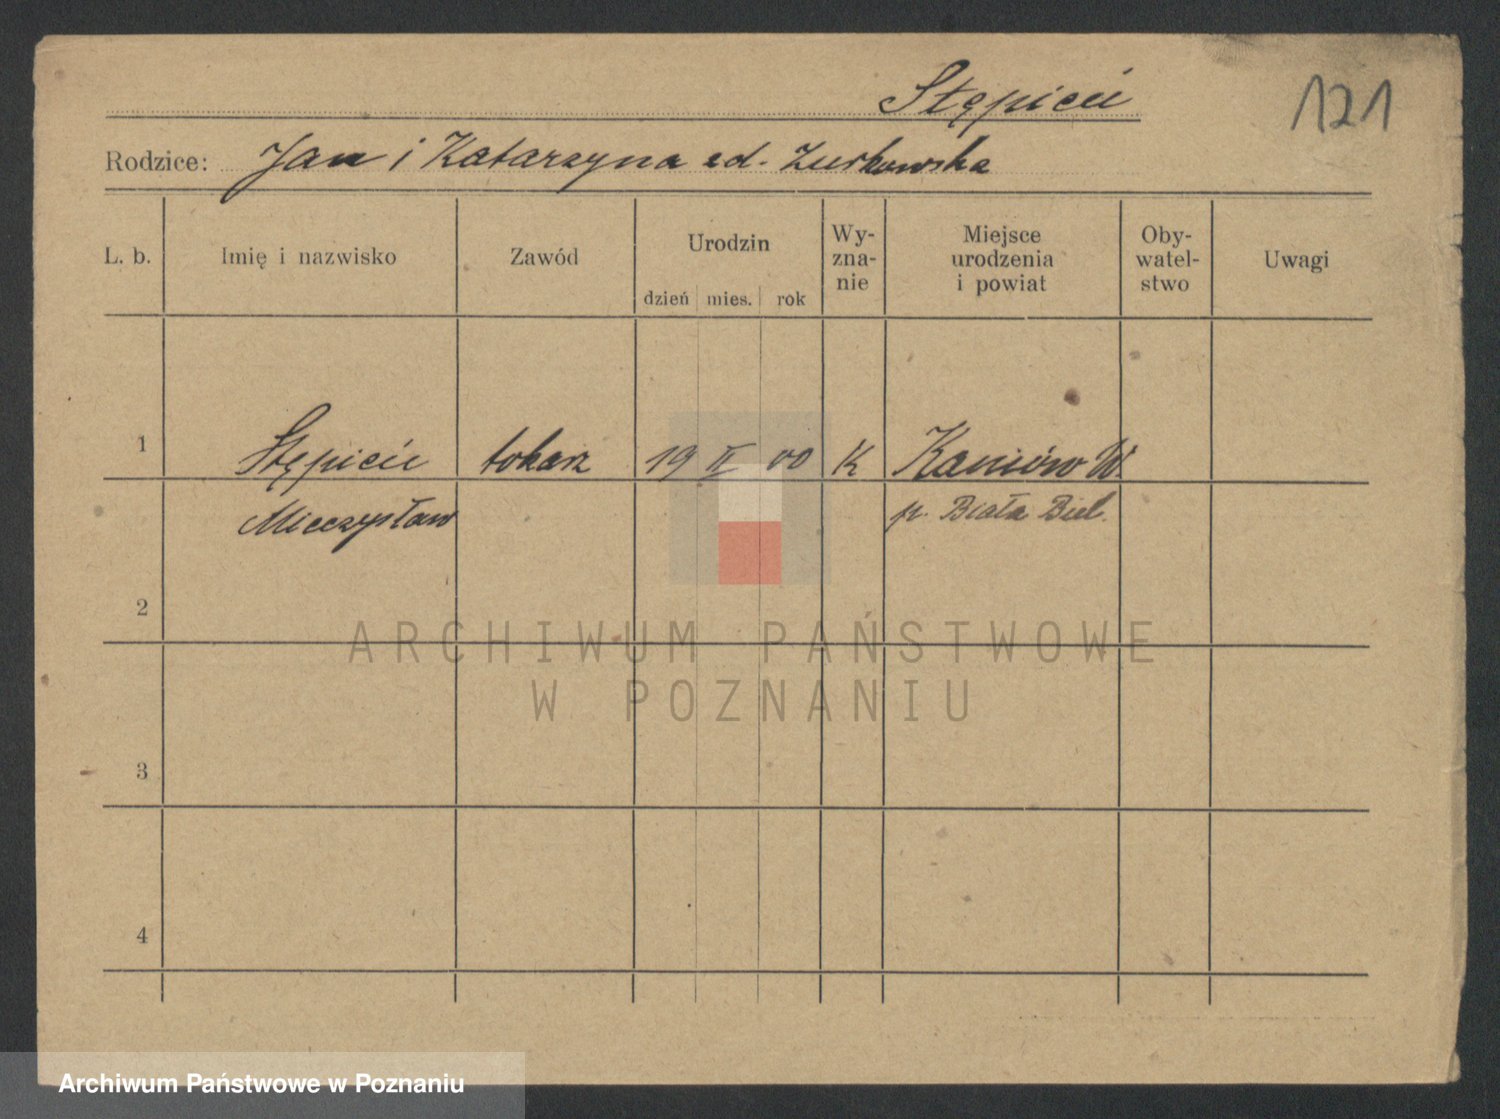 Stępień
121
Rodzice: Jan i Katarzyna zd. Zurkowska
L. b.
Imię i nazwisko
Zawód
Urodzin
dzień mies. rok
Wy-
zna-
nie
Miejsce
urodzenia
i powiat
Oby-
watel-
stwo
Uwagi
1 Stępień tokarz 19 II 00 K Kaniów W.
Mieczysław p. Biała Biel.
2
ARCHIWUM PAŃSTWOWE
W POZNANIU
3
4
Archiwum Państwowe w Poznaniu